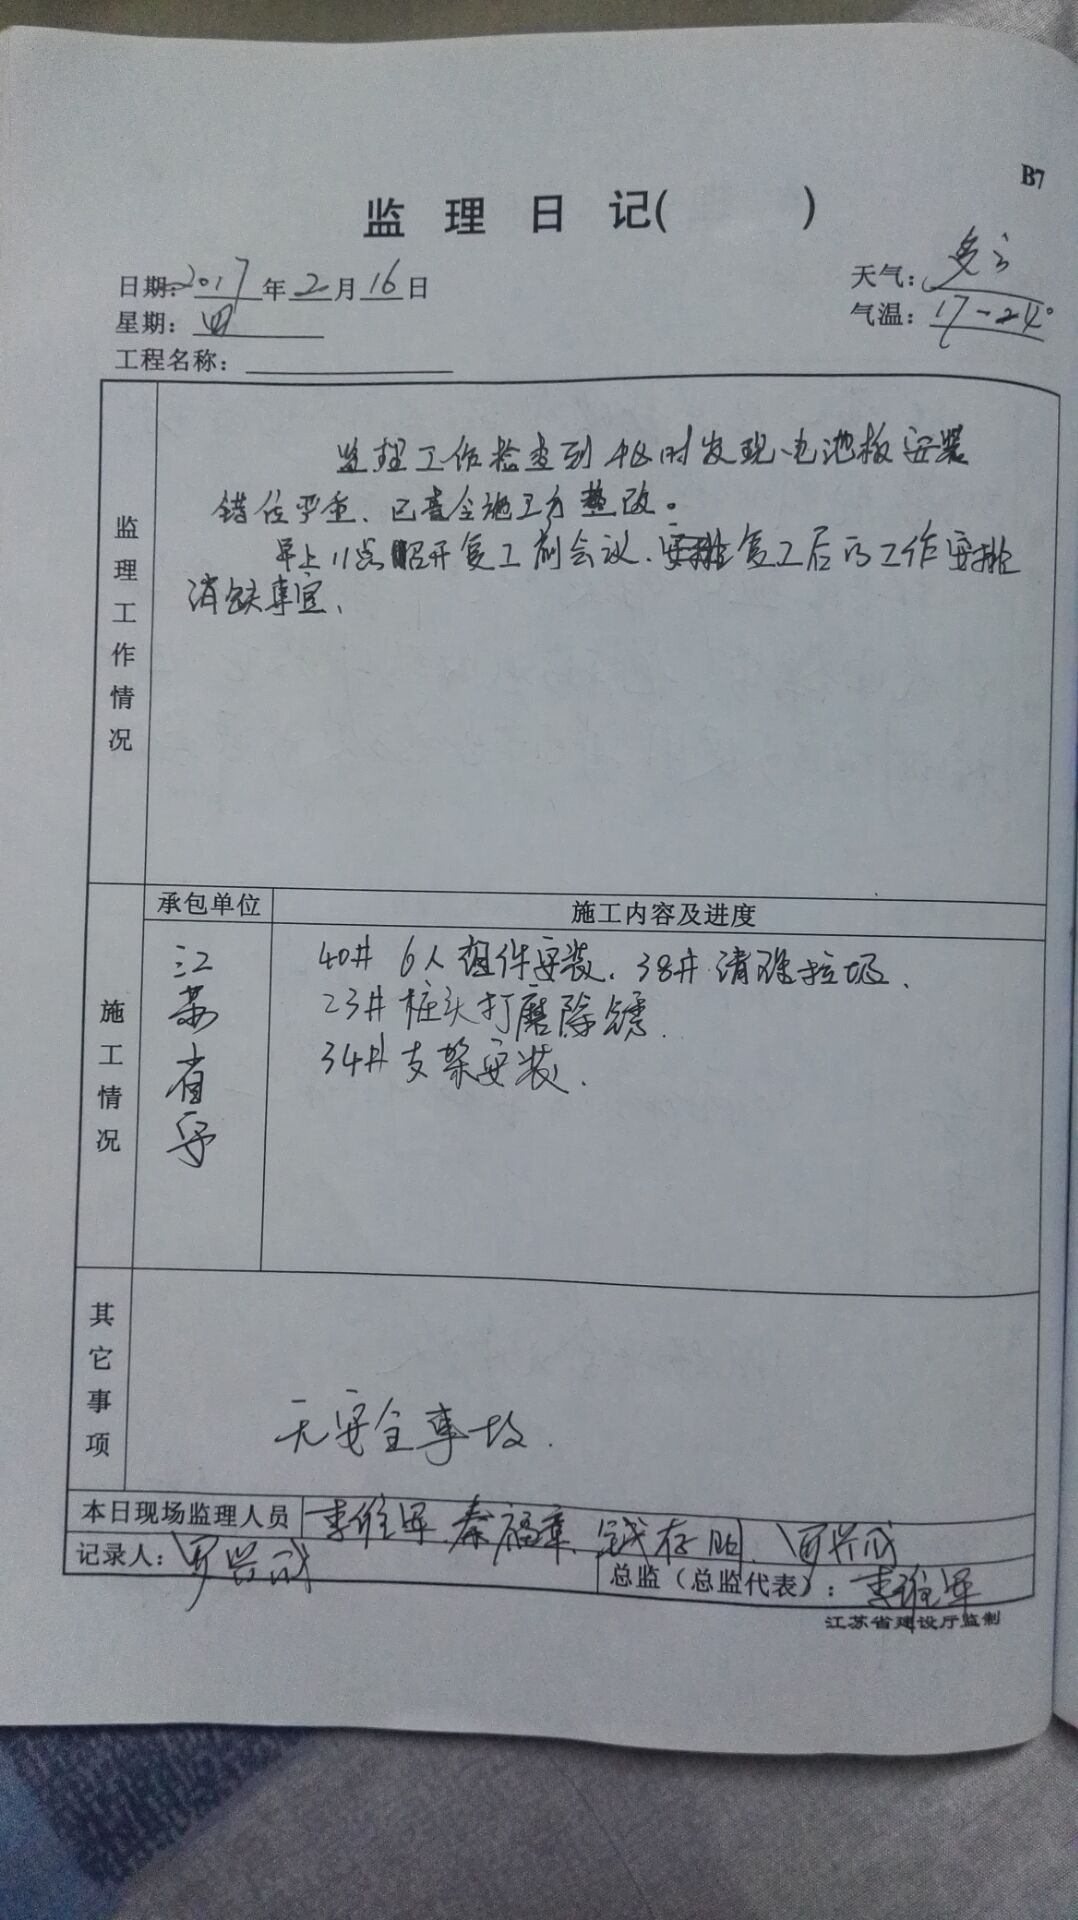 B7
监 理 日 记( )
日期: 2017 年 2 月 16 日
天气: 多云
星期: 四
气温: 17-24°
工程名称:
监理工作情况
监理工作检查到 时发现电池板安装
错位严重、已责令施工方整改。
早上11点召开复工前会议、安排复工后的工作安排
消缺事宜、
施工情况
承包单位
施工内容及进度
江苏省
40# 6人组件安装、38#清除垃圾、
23#桩头打磨除锈.
34#支架安装.
其它事项
无安全事故.
本日现场监理人员 李维军、秦福章、钱存 、
记录人:
总监(总监代表): 李维军
江苏省建设厅监制